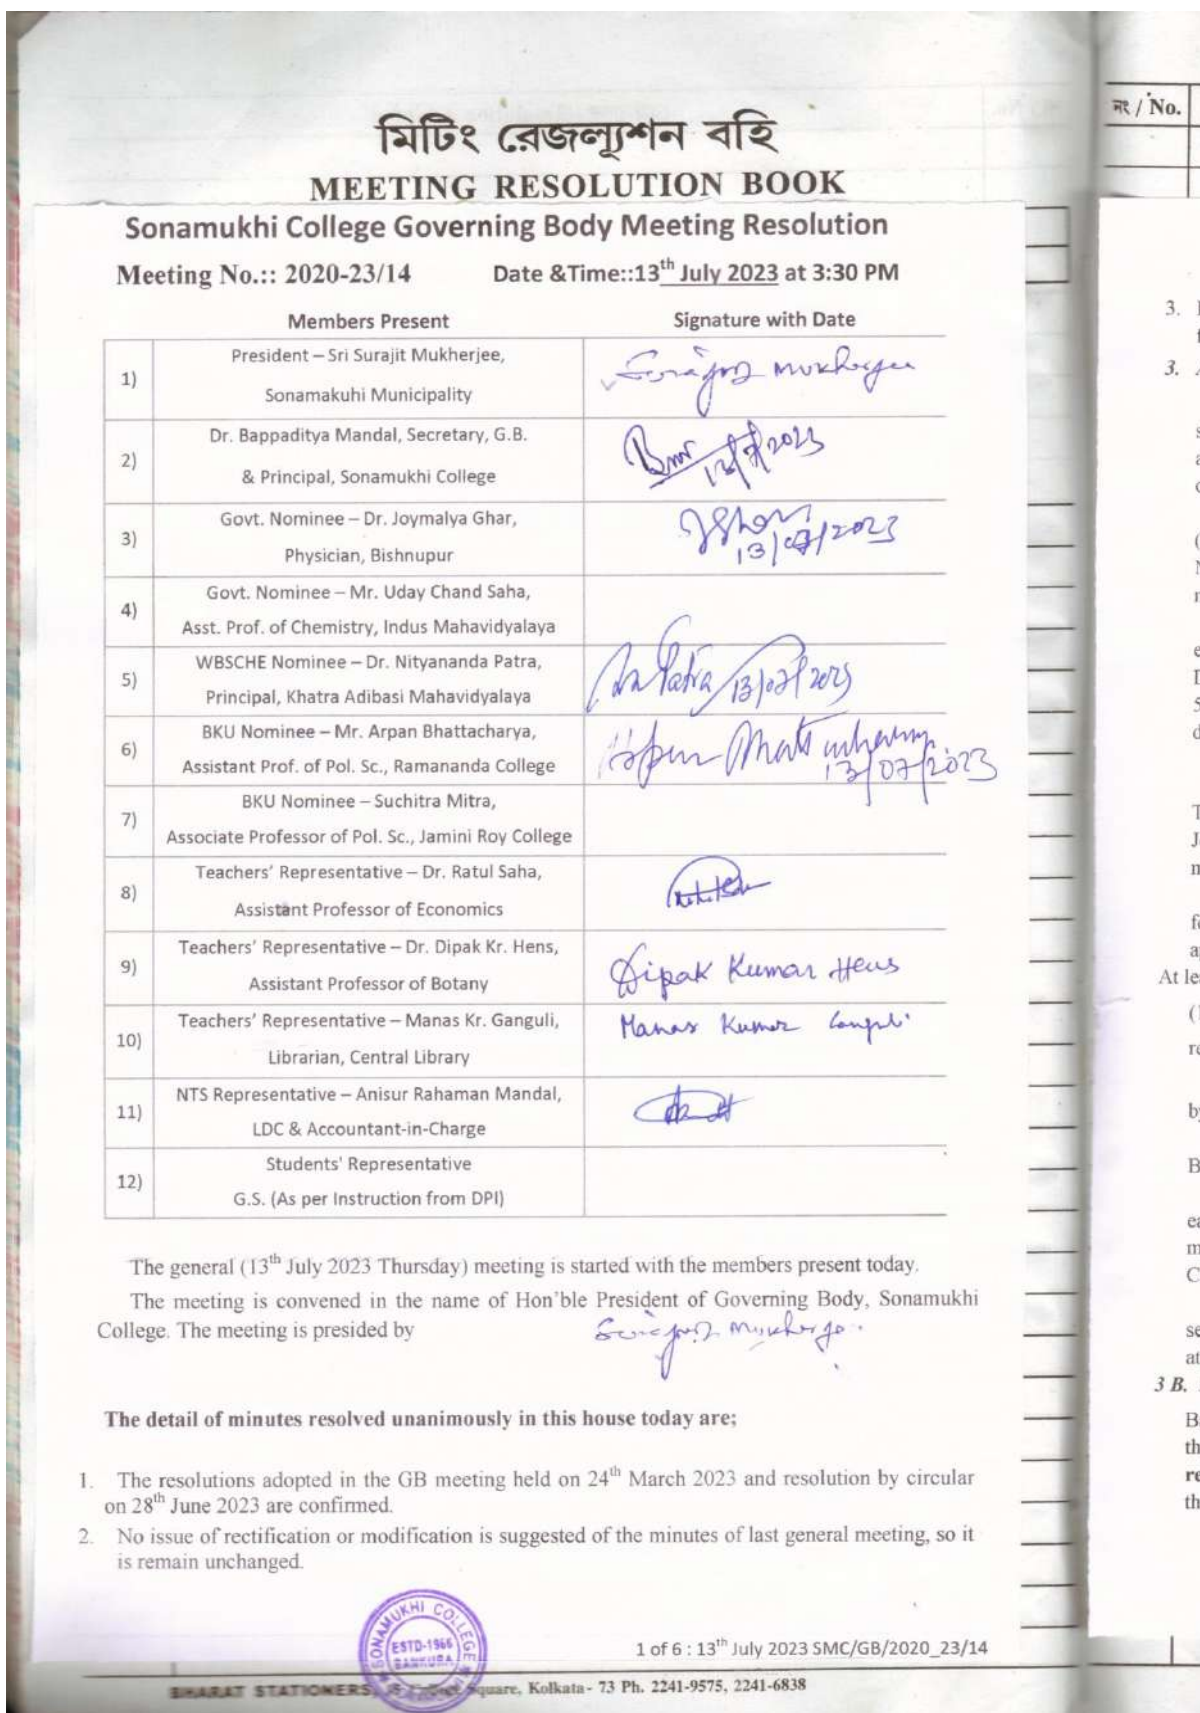 মিটিং রেজল্যুশন বহি
MEETING RESOLUTION BOOK
Sonamukhi College Governing Body Meeting Resolution
Meeting No.:: 2020-23/14 Date &Time::13th July 2023 at 3:30 PM
Members Present Signature with Date
1) President – Sri Surajit Mukherjee,
Sonamakuhi Municipality
Mukherjee
2) Dr. Bappaditya Mandal, Secretary, G.B.
& Principal, Sonamukhi College
13/7/2023
3) Govt. Nominee – Dr. Joymalya Ghar,
Physician, Bishnupur
13/07/2023
4) Govt. Nominee – Mr. Uday Chand Saha,
Asst. Prof. of Chemistry, Indus Mahavidyalaya
5) WBSCHE Nominee – Dr. Nityananda Patra,
Principal, Khatra Adibasi Mahavidyalaya
Patra 13/07/2023
6) BKU Nominee – Mr. Arpan Bhattacharya,
Assistant Prof. of Pol. Sc., Ramananda College
13/07/2023
7) BKU Nominee – Suchitra Mitra,
Associate Professor of Pol. Sc., Jamini Roy College
8) Teachers' Representative – Dr. Ratul Saha,
Assistant Professor of Economics
9) Teachers' Representative – Dr. Dipak Kr. Hens,
Assistant Professor of Botany
Dipak Kumar Hens
10) Teachers' Representative – Manas Kr. Ganguli,
Librarian, Central Library
Manas Kumar Ganguli
11) NTS Representative – Anisur Rahaman Mandal,
LDC & Accountant-in-Charge
12) Students' Representative
G.S. (As per Instruction from DPI)
The general (13th July 2023 Thursday) meeting is started with the members present today.
The meeting is convened in the name of Hon'ble President of Governing Body, Sonamukhi
College. The meeting is presided by
The detail of minutes resolved unanimously in this house today are;
1. The resolutions adopted in the GB meeting held on 24th March 2023 and resolution by circular
on 28th June 2023 are confirmed.
2. No issue of rectification or modification is suggested of the minutes of last general meeting, so it
is remain unchanged.
SONAMUKHI COLLEGE
ESTD-1966
BANKURA
1 of 6 : 13th July 2023 SMC/GB/2020_23/14
BHARAT STATIONERS, Square, Kolkata- 73 Ph. 2241-9575, 2241-6838
নং / No.
3.
3.
At le
3 B.